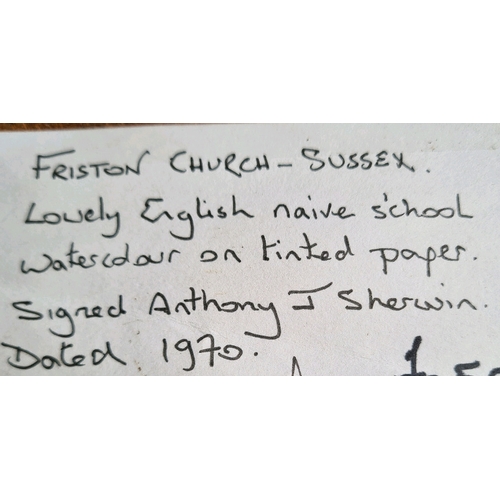 FRISTON CHURCH - SUSSEX.
Lovely English naive school
watercolour on tinted paper.
Signed Anthony J Sherwin.
Dated 1970.